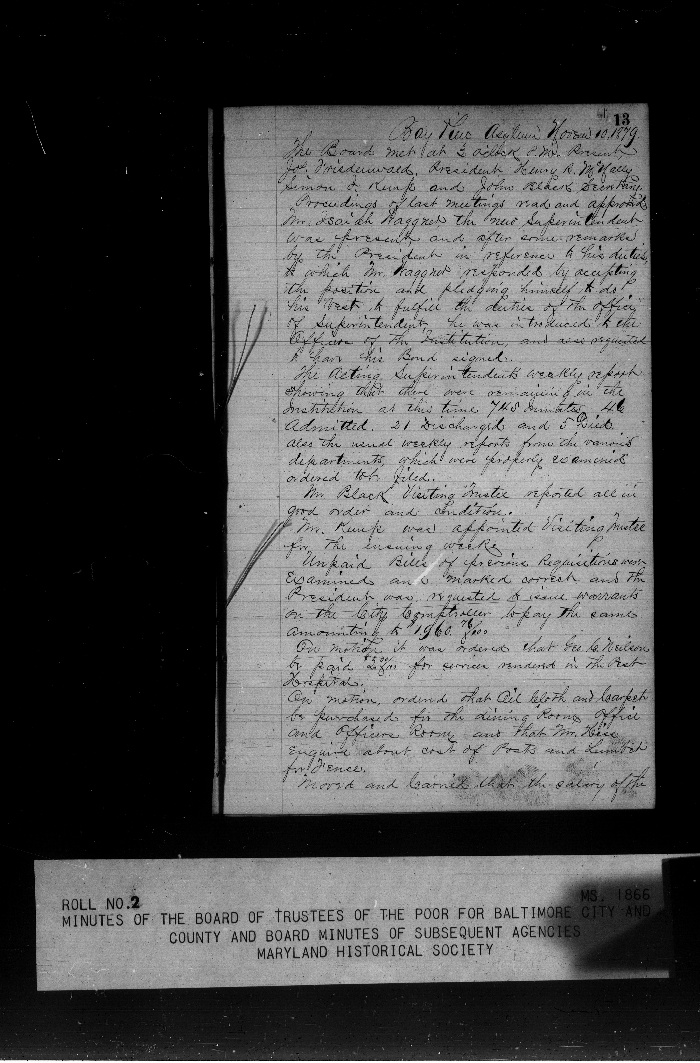 13
Bay View Asylum Novem 10, 1879
The Board met at 2 oclock P.M. Present
Jos. Friedenwald, President Henry A. McNally
Simon J. Kemp and John Black Secretary.
Proceedings of last meetings read and approved
Mr. Isaiah Waggner the new Superintendent
was present and after some remarks
by the President in reference to his duties,
to which Mr. Waggner responded by accepting
the position and pledging himself to do
his best to fulfill the duties of the office
of Superintendent, he was introduced to the
Officers of the Institution, and was requested
to have his Bond signed.
The Acting Superintendents weekly report
showing that there were remaining in the
Institution at this time 745 Inmates, 46
Admitted. 21 Discharged and 5 Died
also the usual weekly reports from the various
departments, which were properly examined
ordered to be filed.
Mr. Black Visiting Trustee reported all in
good order and Condition.
Mr. Kemp was appointed Visiting Trustee
for the insuing week
Unpaid Bills of previous Requisitions were
Examined and marked correct and the
President was requested to issue warrants
on the City Comptroller to pay the same
amounting to 1960. 76/100
On motion it was ordered that Geo C. Neilson
be paid for services rendered in the Pest
Hospital.
On motion, ordered that Oil Cloth and Carpet
be purchased for the dining Room, office
and Officers Room and that Mr.
Enquire about cost of Posts and Lumber
for Fence.
Moved and Carried that the salary of the
ROLL NO.2
MS. 1866
MINUTES OF THE BOARD OF TRUSTEES OF THE POOR FOR BALTIMORE CITY AND
COUNTY AND BOARD MINUTES OF SUBSEQUENT AGENCIES
MARYLAND HISTORICAL SOCIETY